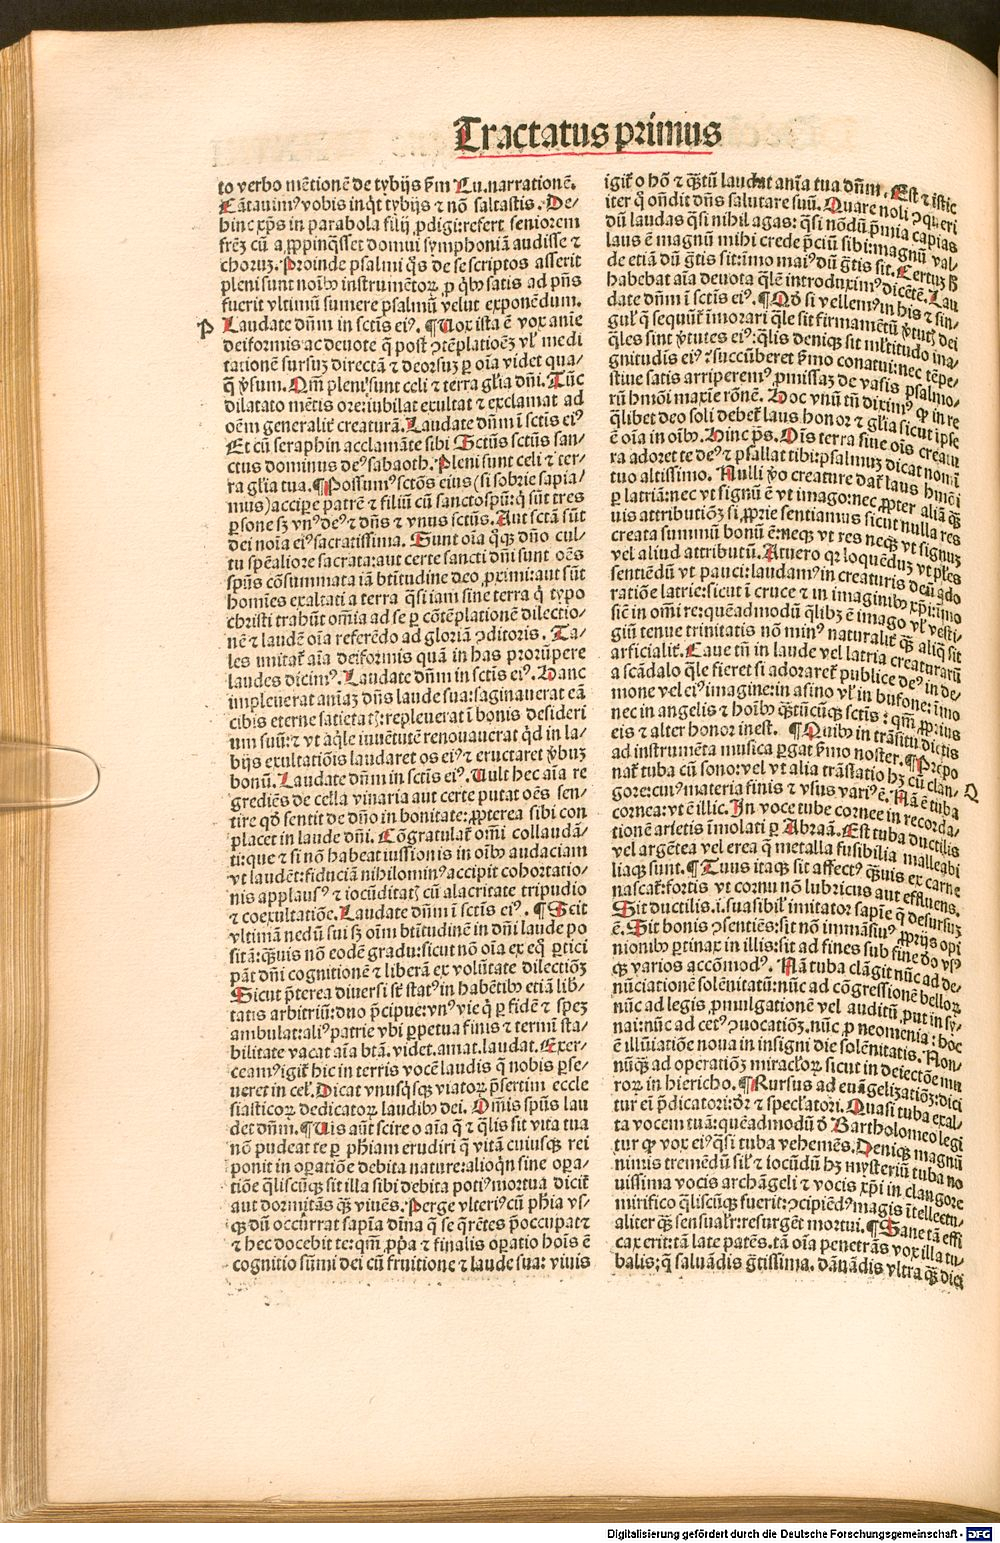 Tractatus primus
to verbo mētionē de tybijs ẜm Lu. narrationē.
Cātauimꝰ vobis inq̇t tybijs ⁊ nō saltastis. De-
hinc xp̄s in parabola filij ꝓdigi: refert seniorem
frēꝫ cū aꝓpinq̄sset domui symphoniā audisse ⁊
choruꝫ. Proinde psalmi q̇s de se scriptos asserit
pleni sunt noībꝰ instrumētoꝝ ꝓ q̇bꝰ satis ad pn̄s
fuerit vltimū sumere psalmū velut exponēdum.
P
Laudate dn̄m in sctīs eiꝰ. ¶Uox ista ē vox anīe
deiformis ac deuote q̄ post ꝯtēplatioēꝫ vl̓ medi
tationē sursuꝫ directā ⁊ deorsuꝫ ꝑ oīa videt qua-
q̄ ṽsum. Qm̄ pleni sunt celi ⁊ terra gl̓ia dn̄i. Tūc
dilatato mētis ore: iubilat exultat ⁊ exclamat ad
oēm generalit̓ creaturā. Laudate dn̄m ī sctīs eiꝰ
Et cū seraphin acclamāte sibi Sctūs sctūs san-
ctus dominus deꝰ sabaoth. Pleni sunt celi ⁊ ter-
ra gl̓ia tua. ¶Possumꝰ sctōs eius (si sobrie sapia-
mus) accipe patrē ⁊ filiū cū sancto spū: q̇ sūt tres
ꝑsone sꝫ vnꝰ deꝰ ⁊ dn̄s ⁊ vnus sctūs. Aut sctā sūt
dei noīa eiꝰ sacratissima. Sunt oīa q̇qꝫ dn̄o cul-
tu spēaliore sacrata: aut certe sancti dn̄i sunt oēs
spūs cōsummata iā btītudine deo ꝓximi: aut sūt
homīes exaltati a terra q̄si iam sine terra q̇ typo
christi trahūt om̄ia ad se ꝑ cōtēplationē dilectio-
nē ⁊ laudē oīa referēdo ad gloriā ꝯditoris. Ta-
les imitat̓ aīa deiformis quā in has prorūpere
laudes dicimꝰ. Laudate dn̄m in sctīs eiꝰ. Hanc
impleuerat aniāꝫ dn̄s laude sua: saginauerat eā
cibis eterne satietatꝭ: repleuerat ī bonis desideri
um suū: ⁊ vt aq̇le iuuētutē renouauerat q̇d in la-
bijs exultatiōis laudaret os eiꝰ ⁊ eructaret ṽbuꝫ
bonū. Laudate dn̄m in sctīs eiꝰ. Uult hec aīa re
grediēs de cella vinaria aut certe putat oēs sen-
tire qd̓ sentit de dn̄o in bonitate: ꝓpterea sibi con
placet in laude dn̄i. Cōgratulat̓ om̄i collaudā-
ti: que ⁊ si nō habeat iussionis in oībꝰ audaciam
vt laudēt: fiduciā nihilominꝰ accipit cohortatio-
nis applausꝰ ⁊ iocūditatꝭ cū alacritate tripudio
⁊ coexultatiōe. Laudate dn̄m ī sctīs eiꝰ. ¶Scit
vltimā nedū sui sꝫ oīm btītudinē in dn̄i laude po
sitā: q̄uis nō eodē gradu: sicut nō oīa ex eq̊ ꝑtici
pāt dn̄i cognitionē ⁊ liberā ex volūtate dilectiōꝫ
Sicut p̄terea diuersi sūt statꝰ in habētibꝰ etiā lib-
tatis arbitriū: duo p̄cipue: vnꝰ vie q̇ ꝑ fidē ⁊ speꝫ
ambulat: aliꝰ patrie vbi ꝑpetua finis ⁊ termī sta-
bilitate vacat aīa btā. videt. amat. laudat. Exer-
ceamꝰ igit̓ hic in terris vocē laudis q̄ nobis ꝑse-
ueret in cel̓. Dicat vnusq̇sqꝫ viatoꝝ p̄sertim eccle
siasticoꝝ dedicatoꝝ laudibꝰ dei. Om̄is spūs lau
det dn̄m. ¶Uis aūt scire o aīa q̄ ⁊ q̄lis sit vita tua
nō pudeat te ꝑ ph̄iam erudiri q̄ vitā cuiusqꝫ rei
ponit in oꝑatiōe debita nature: alioq̇n sine oꝑa-
tiōe q̄liscūqꝫ sit illa sibi debita potiꝰ mortua dicit̓
aut dormitās q̄ꝫ viuēs. Perge vlteriꝰ cū ph̄ia vs-
qꝫ dū occūrrat sapīa dīna q̄ se q̄rētes p̄occupat ⁊
⁊ hec docebit te: qm̄ ꝓp̓a ⁊ finalis oꝑatio hoīs ē
cognitio sūmi dei cū fruitione ⁊ laude sua: viuis
igit̓ o hō ⁊ q̄ꝫtū laudat anīa tua dn̄m. Est ⁊ istic
iter q̊ on̄dit dn̄s salutare suū. Quare noli ꝯqueri
dū laudas q̄si nihil agas: q̄si nōdū p̄mia capias
laus ē magnū mihi crede p̄ciū sibi: magnū val-
de etiā dū gr̄tis sit: īmo maiꝰ dū gr̄tis sit. Certuꝫ ꝟ
habebat aīa deuota q̄lē introduximꝰ dicētē. Lau
date dn̄m ī sctīs eiꝰ. ¶Qd̓ si vellemꝰ in his ⁊ sin-
gul̓ q̄ sequūt̓ īmorari q̄le sit firmamētū ṽtutꝭ dei
q̄les sint ṽtutes eiꝰ: q̄lis deniqꝫ sit ml̓titudo ma-
gnitudis eiꝰ: succūberet p̄mo conatui: nec tēpe-
stiue satis arriperemꝰ ꝓmissaꝫ de vasis psalmo-
rū hmōi maxīe rōnē. Hoc vnū tn̄ diximꝰ ꝙ in re
q̄libet deo soli debet̓ laus honor ⁊ gl̓ia sicut ipse
ē oīa in oībꝰ. Hinc p̄s. Oīs terra siue oīs creatu
ra adoret te deꝰ ⁊ psallat tibi: psalmuꝫ dicat nomī
tuo altissimo. Nulli ṽo creature dat̓ laus hmōi
ꝑ latriā: nec vt signū ē vt imago: nec ꝓpter aliā q̄ꝫ
uis attributiōꝫ si ꝓprie sentiamus sicut nulla res
creata summū bonū ē: neqꝫ vt res neqꝫ vt signuꝫ
vel aliud attributū. Atuero qꝛ loquēduꝫ vt ples
sentiēdū vt pauci: laudamꝰ in creaturis deū ado
ratiōe latrie: sicut ī cruce ⁊ in imaginibꝰ xp̄i: īmo
siē in om̄i re: quēadmodū q̄libꝫ ē imago vl̓ vesti-
giū tenue trinitatis nō minꝰ naturalit̓ q̄ꝫ aliq̄ sit
arficialit̓. Caue tn̄ in laude vel latria creaturarū
a scādalo q̄le fieret si adoraret̓ publice deꝰ in de-
mone vel eiꝰ imagine: in asino vl̓ in bufone: īmo
nec in angelis ⁊ hoībꝰ q̄ꝫtūcūqꝫ sctīs: qm̄ ꝓprius
eis ⁊ alter honor inest. ¶Quibꝰ in trāsitu dictis
ad instrumēta musica ꝑgat p̄mo noster. ¶Prepo
Q
nat̓ tuba cū sono: vel vt alia trāslatio hꝫ cū clan-
gore: cuiꝰ materia finis ⁊ vsus variꝰ ē. Nā ē tuba
cornea: vt ē illic. In voce tube cornee in recorda-
tionē arietis īmolati ꝑ Abraā. Est tuba ductilis
vel argētea vel erea q̄ metalla fusibilia malleabi
liaqꝫ sunt. ¶Tuus itaqꝫ sit affectꝰ q̄ꝫuis ex carne
nascat̓: fortis vt cornu nō lubricus aut effluens.
Sit ductilis .i. suasibil̓ imitator sapīe q̄ desursuꝫ
ē. Sit bonis ꝯsentiēs: sit nō immāsiuꝰ ꝓprijs opi
nionibꝰ ꝑtinax in illis: sit ad fines sub fine dō vsꝰ
qꝫ varios accōmodꝰ. Nā tuba clāgit nūc ad de-
nūciationē solēnitatū: nūc ad cōgressionē belloꝝ
nūc ad legis ꝓmulgationē vel auditū, put in sy-
nai: nūc ad cetꝰ ꝯuocatiōꝫ. nūc ꝓ neomenia: hoc
ē illūiatiōe noua in insigni die solēnitatis. Non-
nūqꝫ ad operatiōꝫ miracl̓oꝝ sicut in deiectōe mu
roꝝ in hiericho. ¶Rursus ad euāgelizatiōꝫ: dici
tur ei p̄dicatori: ꝺr ⁊ specl̓atori. Quasi tuba exal-
ta vocem tuā: quēadmodū ꝺ Bartholomeo legi
tur ꝙ vox eiꝰ q̄si tuba vehemēs. Deniqꝫ magnū
nimis tremēdū sil̓ ⁊ iocūdū hꝫ mysteriū tuba no
uissima vocis archāgeli ⁊ vocis xp̄i in clangore
mirifico q̄liscūqꝫ fuerit: ꝯcipiēdꝰ magis ītellectu-
aliter q̄ꝫ sensual̓r: resurgēt mortui. ¶Sane tā effi
cax erit: tā late patēs. tā oīa penetrās vox illa tu-
balis: q̇ saluādis gr̄tissima. dānādis vltra q̄ꝫ dici
Digitalisierung gefördert durch die Deutsche Forschungsgemeinschaft - DFG